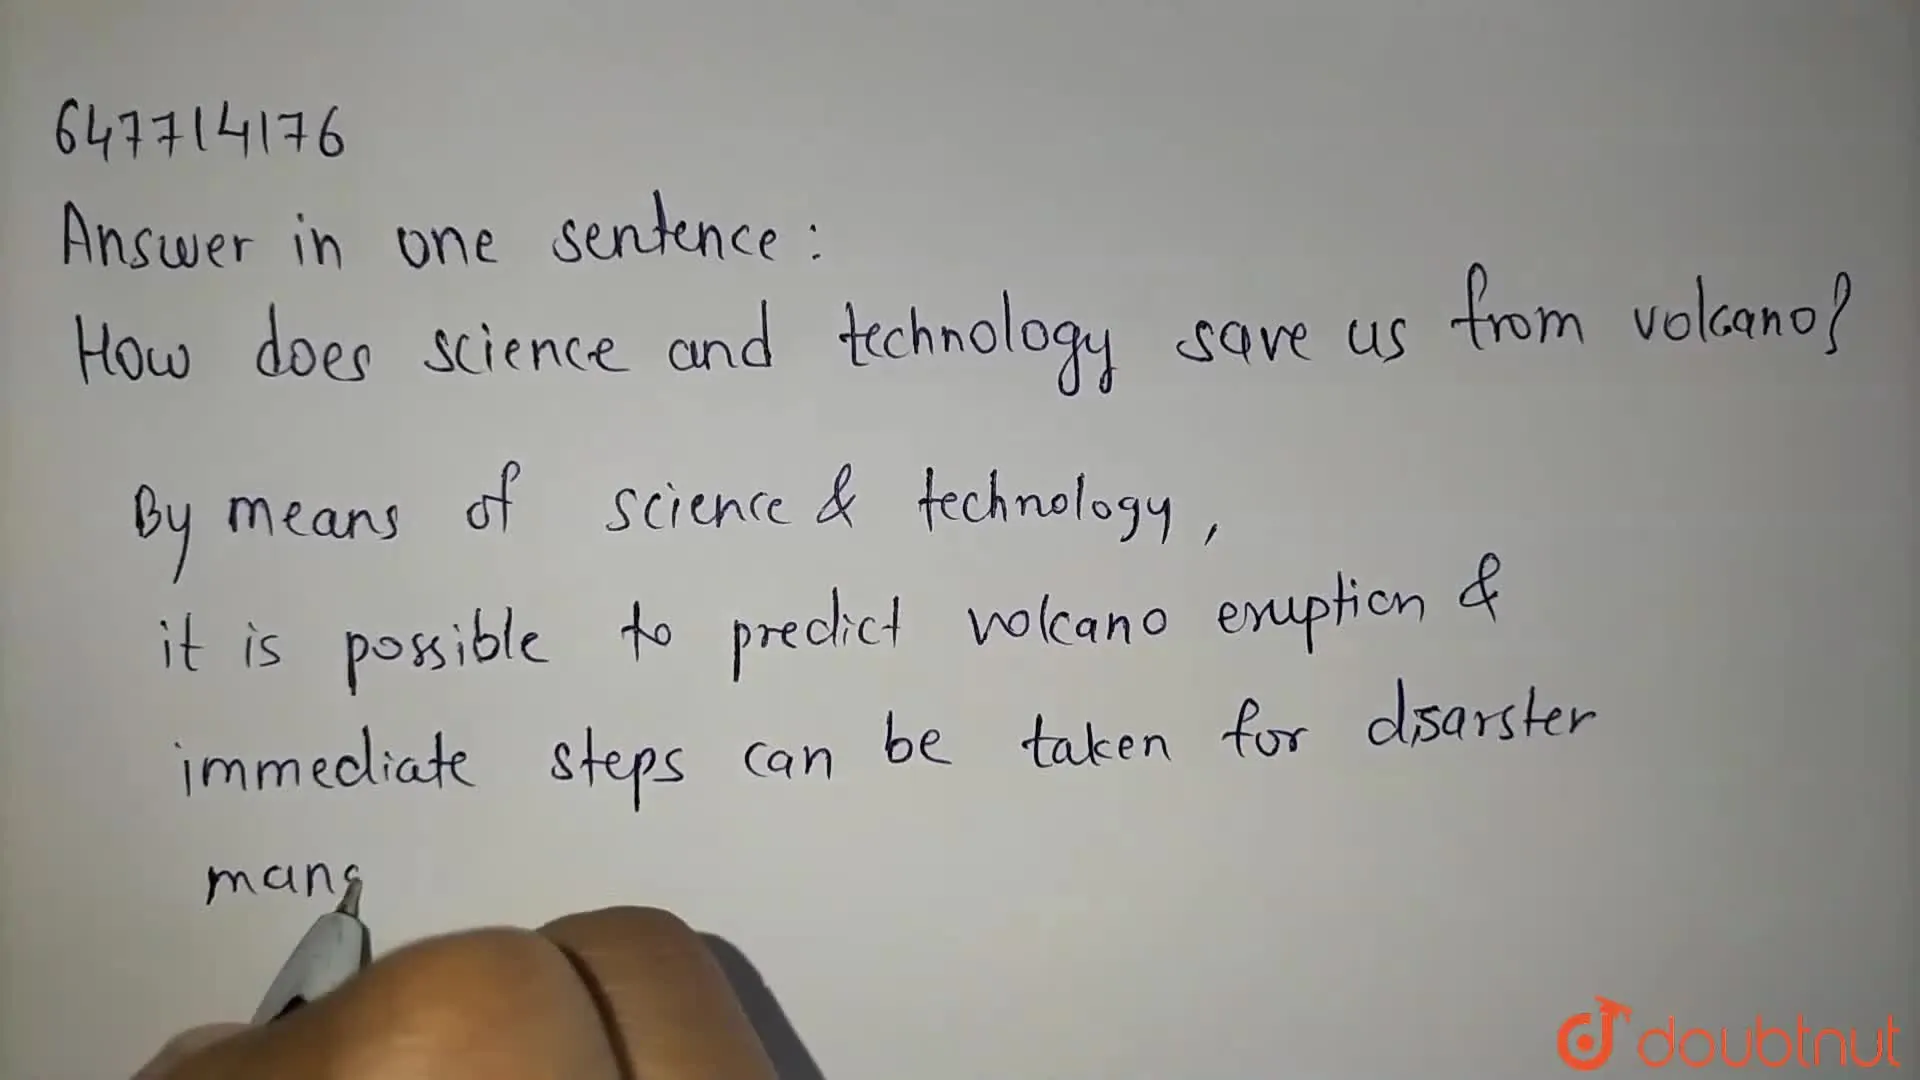 647714176
Answer in one sentence:
How does science and technology save us from volcano?
By means of science & technology,
it is possible to predict volcano eruption &
immediate steps can be taken for disarster
mana
doubtnut